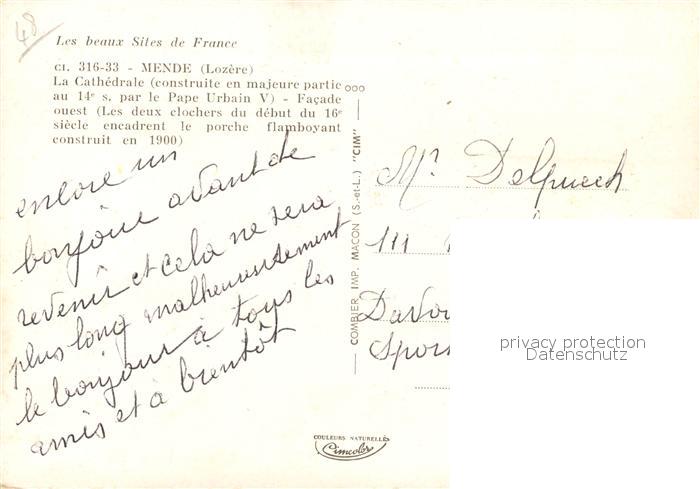 48
Les beaux Sites de France
CI. 316-33 - MENDE (Lozère)
La Cathédrale (construite en majeure partie
au 14e s. par le Pape Urbain V) - Façade
ouest (Les deux clochers du début du 16e
siècle encadrent le porche flamboyant
construit en 1900)
encore un
bonjour avant de
revenir et cela ne sera
plus long malheureusement
le bonjour à tous les
amis et à bientôt
COMBIER IMP. MACON (S.-et-L.) "CIM"
Mr Delpuech
111
Spor
privacy protection
Datenschutz
COULEURS NATURELLES
Cimcolor